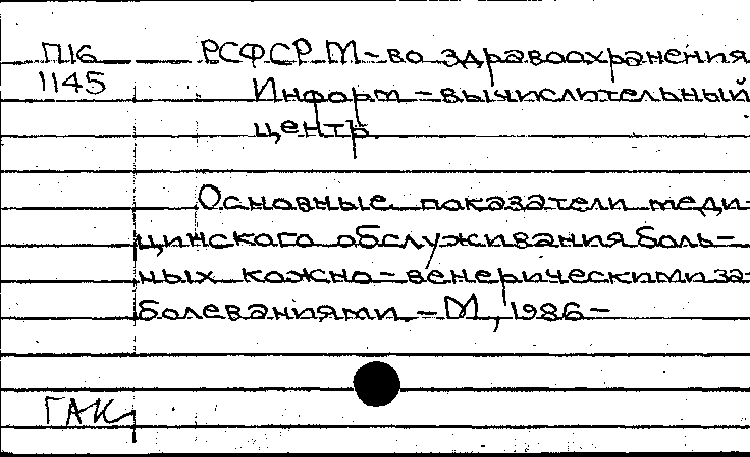 П16 РСФСР М-во здравоохранения
1145 Информ-вычислительный
центр.
Основные показатели меди-
цинского обслуживания боль-
ных кожно-венерическими за-
болеваниями. - М, 1986-
ГАК